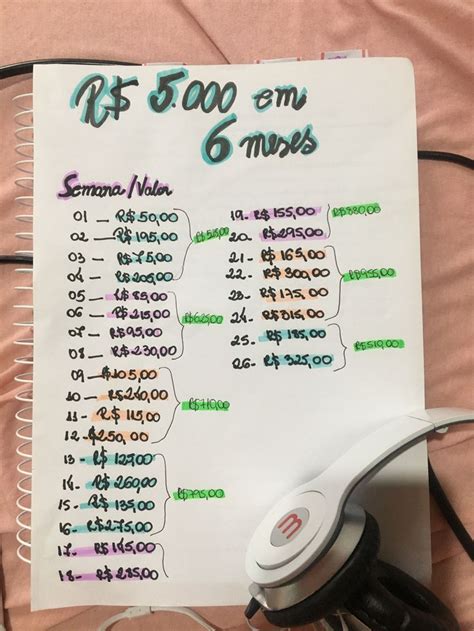 R$ 5.000 em
6 meses
Semana/Valor
01 — R$50,00
02 — R$195,00
03 — R$75,00
04 — R$205,00
05 — R$85,00
06 — R$215,00
R$625,00
07 — R$95,00
08 — R$230,00
09 — R$105,00
10 — R$240,00
R$710,00
11 — R$115,00
12 - $250,00
13 - R$ 125,00
14 - R$260,00
R$795,00
15 - R$ 135,00
16 - R$275,00
17 - R$145,00
18 - R$ 285,00
19 - R$ 155,00
R$880,00
20 - R$295,00
21 - R$ 165,00
22 - R$ 300,00
R$955,00
23 - R$ 175,00
24 - R$315,00
25 - R$ 185,00
R$510,00
26 - R$ 325,00